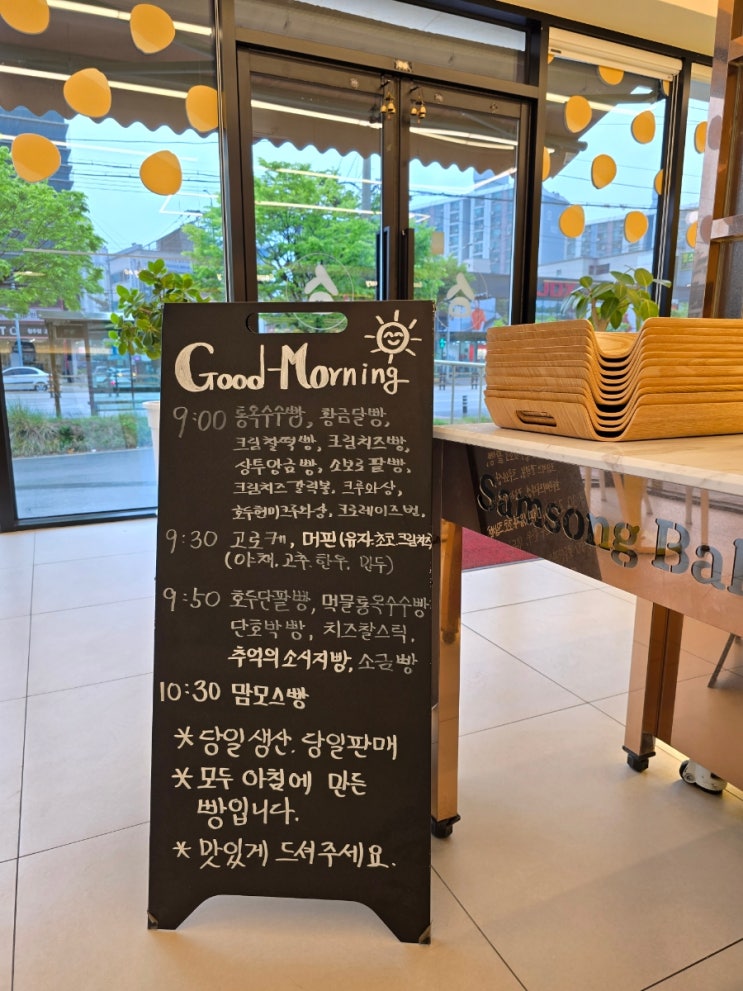 Good Morning
9:00 통옥수수빵, 황금달빵,
크림찰떡빵, 크림치즈빵,
상투앙금빵, 소보로팥빵,
크림치즈 갈릭볼, 크루와상,
호두현미크루와상, 크르레이즈번,
9:30 고로케, 머핀(유자.초코.크림치즈)
(야채, 고추, 한우, 만두)
9:50 호두단팥빵, 먹물통옥수수빵
단호박빵, 치즈찰스틱,
추억의소시지빵, 소금빵
10:30 맘모스빵
* 당일생산. 당일판매
* 모두 아침에 만든
빵입니다.
* 맛있게 드셔주세요.
Samsong Bak